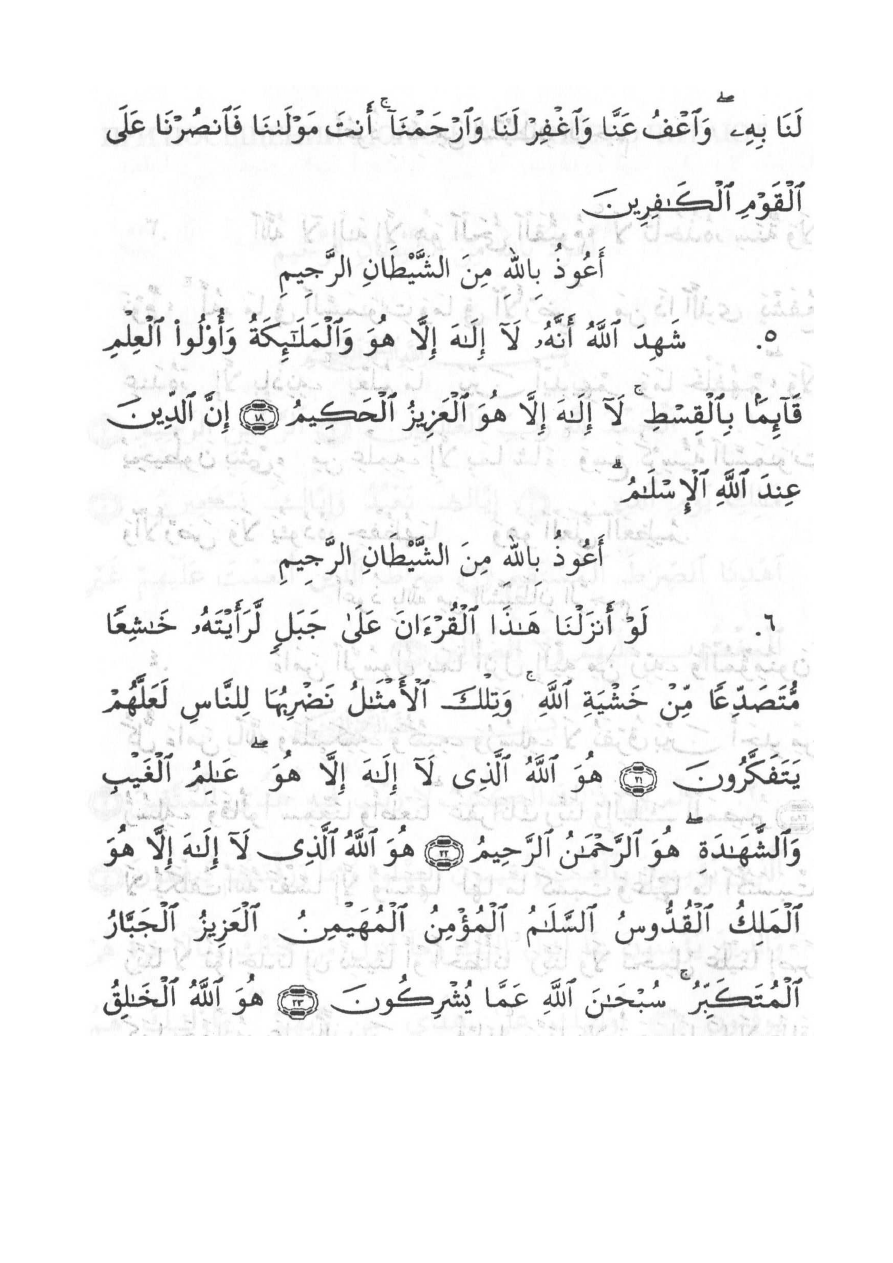 لَنَا بِهِۦۖ وَٱعْفُ عَنَّا وَٱغْفِرْ لَنَا وَٱرْحَمْنَآۚ أَنتَ مَوْلَىٰنَا فَٱنصُرْنَا عَلَى
ٱلْقَوْمِ ٱلْكَـٰفِرِينَ
أَعُوذُ بِاللهِ مِنَ الشَّيْطَانِ الرَّجِيمِ
٥. شَهِدَ ٱللَّهُ أَنَّهُۥ لَآ إِلَـٰهَ إِلَّا هُوَ وَٱلْمَلَـٰٓئِكَةُ وَأُو۟لُوا۟ ٱلْعِلْمِ
قَآئِمًۢا بِٱلْقِسْطِۚ لَآ إِلَـٰهَ إِلَّا هُوَ ٱلْعَزِيزُ ٱلْحَكِيمُ ١٨ إِنَّ ٱلدِّينَ
عِندَ ٱللَّهِ ٱلْإِسْلَـٰمُۗ
أَعُوذُ بِاللهِ مِنَ الشَّيْطَانِ الرَّجِيمِ
٦. لَوْ أَنزَلْنَا هَـٰذَا ٱلْقُرْءَانَ عَلَىٰ جَبَلٍ لَّرَأَيْتَهُۥ خَـٰشِعًا
مُّتَصَدِّعًا مِّنْ خَشْيَةِ ٱللَّهِۚ وَتِلْكَ ٱلْأَمْثَـٰلُ نَضْرِبُهَا لِلنَّاسِ لَعَلَّهُمْ
يَتَفَكَّرُونَ ٢١ هُوَ ٱللَّهُ ٱلَّذِى لَآ إِلَـٰهَ إِلَّا هُوَۖ عَـٰلِمُ ٱلْغَيْبِ
وَٱلشَّهَـٰدَةِۖ هُوَ ٱلرَّحْمَـٰنُ ٱلرَّحِيمُ ٢٢ هُوَ ٱللَّهُ ٱلَّذِى لَآ إِلَـٰهَ إِلَّا هُوَ
ٱلْمَلِكُ ٱلْقُدُّوسُ ٱلسَّلَـٰمُ ٱلْمُؤْمِنُ ٱلْمُهَيْمِنُ ٱلْعَزِيزُ ٱلْجَبَّارُ
ٱلْمُتَكَبِّرُۚ سُبْحَـٰنَ ٱللَّهِ عَمَّا يُشْرِكُونَ ٢٣ هُوَ ٱللَّهُ ٱلْخَـٰلِقُ